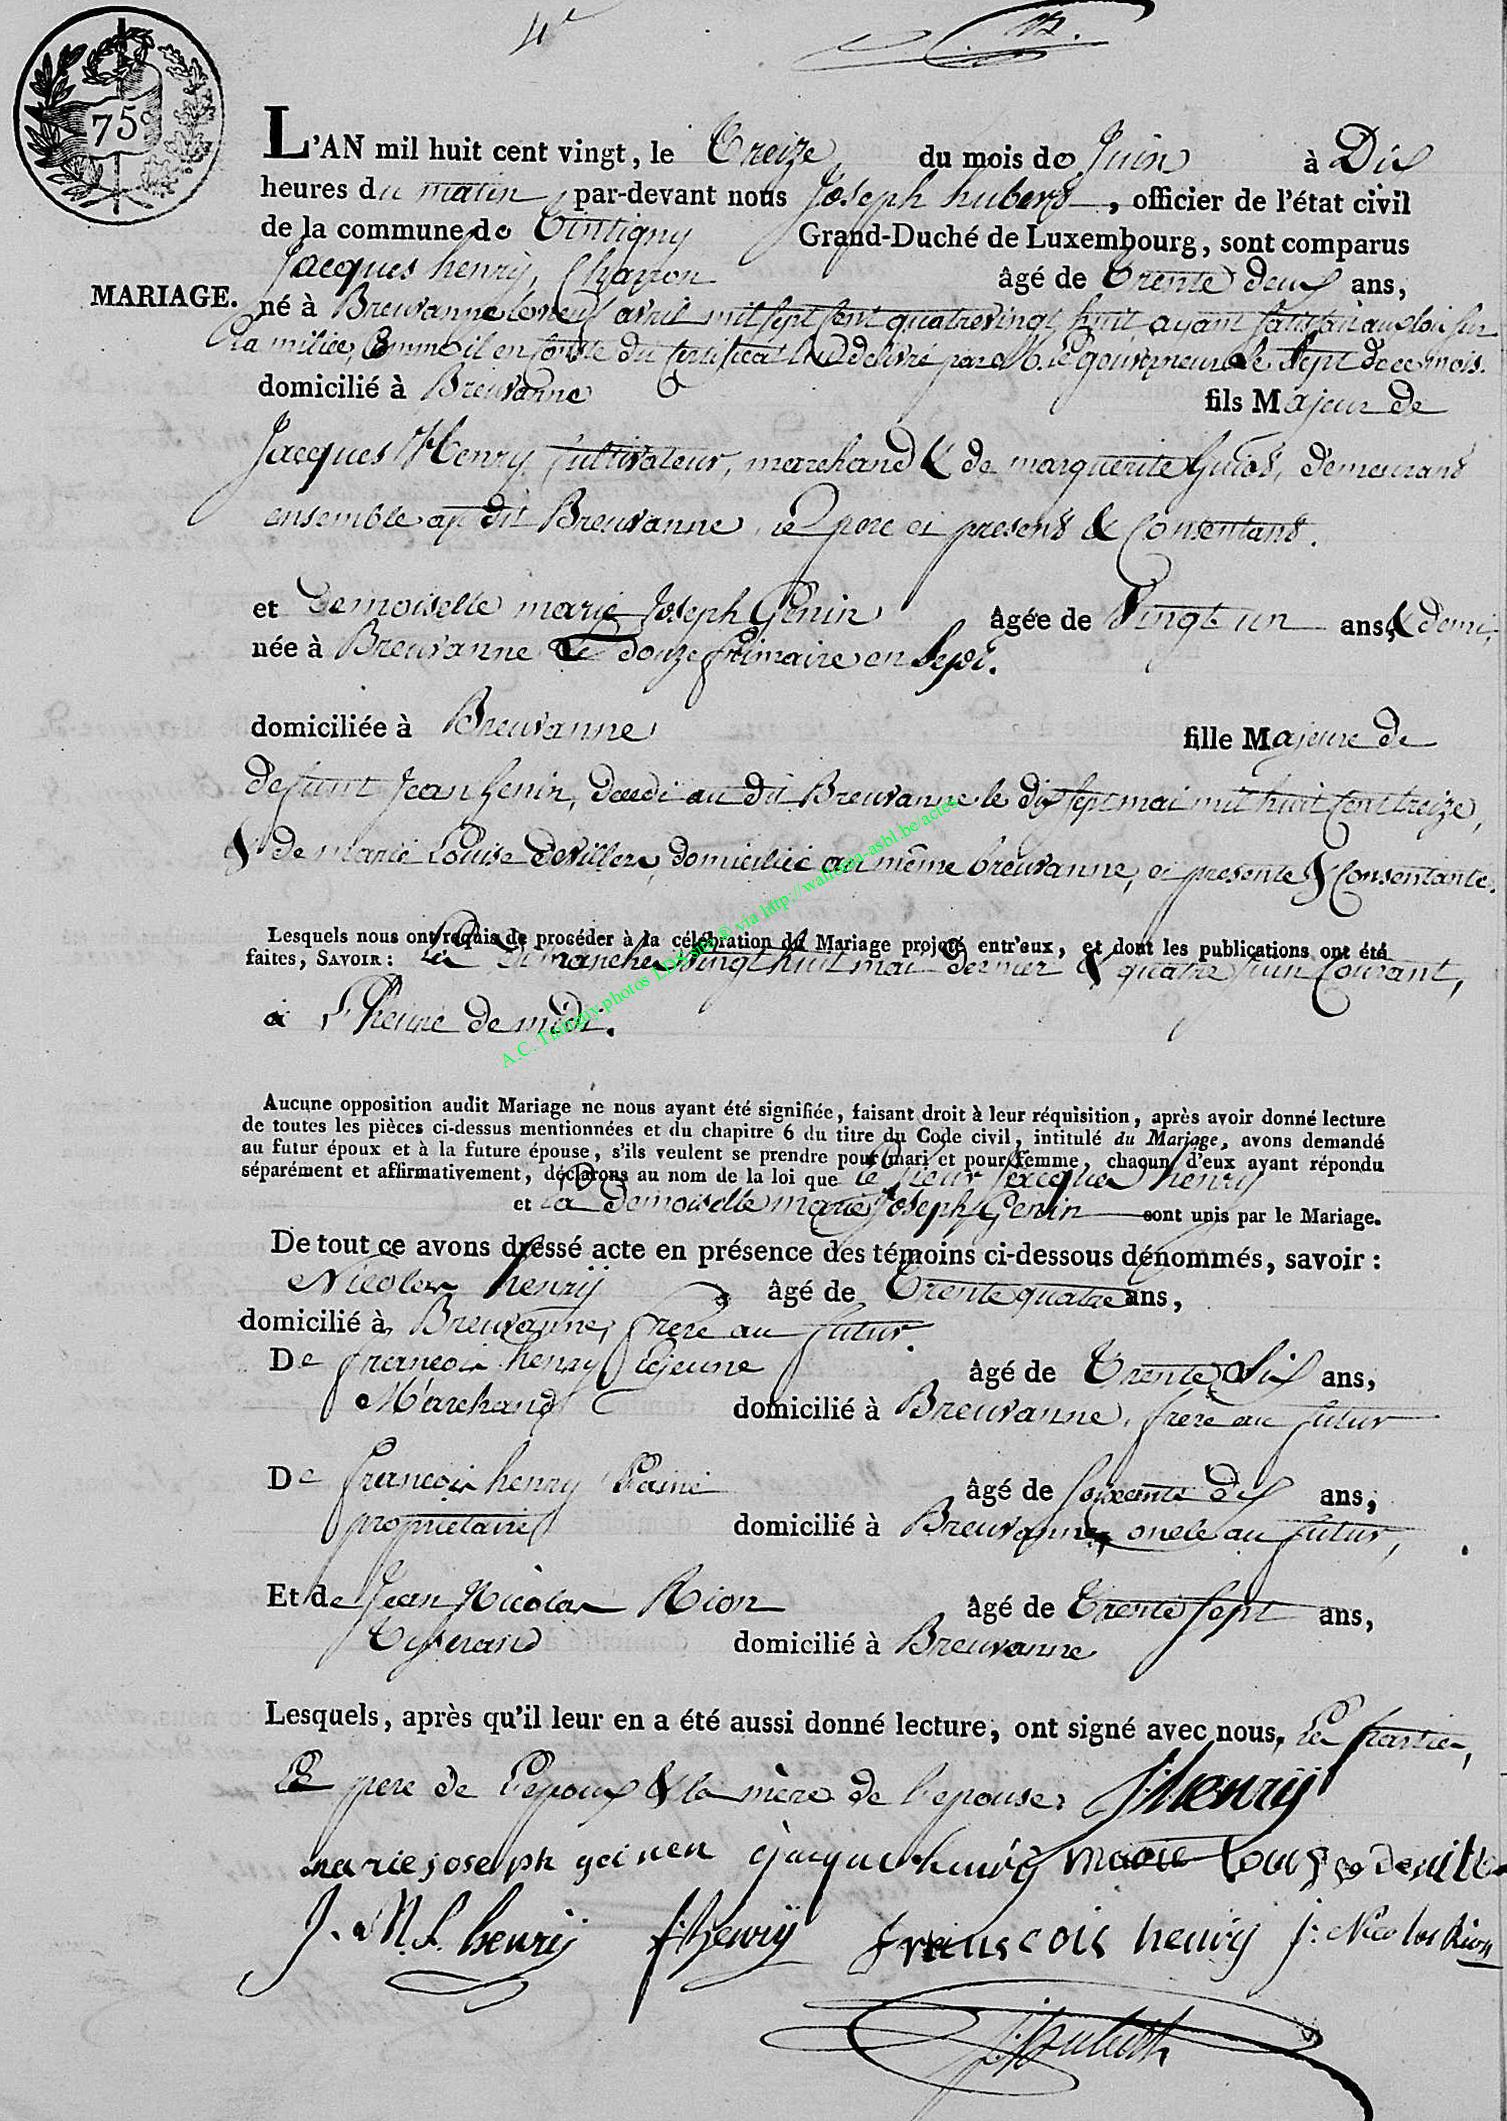 4e
75c
L'AN mil huit cent vingt, le Treize du mois de Juin à Dix
heures du matin par-devant nous Joseph hubert, officier de l'état civil
de la commune de Tintigny Grand-Duché de Luxembourg, sont comparus
Jacques henry, Charron âgé de Trente deux ans,
MARIAGE. né à Breuvanne le neuf avril mil sept Cent quatrevingt huit ayant satisfait aux loix sur
la milice, Comme il en Conste du Certificat lui delivré par M. le gouverneur le Sept de ce mois.
domicilié à Breuvanne fils Majeur de
Jacques Henry, Cultivateur, marchand & de marguerite Guiot, demeurans
ensemble au dit Breuvanne, le pere ci present & Consentant.
et Demoiselle marie Joseph Génin âgée de Vingt un ans, & demi,
née à Breuvanne Le douze frimaire an Sept.
domiciliée à Breuvanne fille Majeure de
defunt Jean Genin, decedé au dit Breuvanne le dix sept mai mil huit Cent treize,
& de marie Louise Deviller, domiciliée au même breuvanne, ci presente & Consentante.
Lesquels nous ont requis de procéder à la célébration du Mariage projeté entr'eux, et dont les publications ont été
faites, SAVOIR : Les Dimanches Vingt huit mai dernier & quatre Juin Courant,
à L'heure de midi.
A.C. Tintigny photos LDS site © via http://wallonia-asbl.be/actes
Aucune opposition audit Mariage ne nous ayant été signifiée, faisant droit à leur réquisition, après avoir donné lecture
de toutes les pièces ci-dessus mentionnées et du chapitre 6 du titre du Code civil, intitulé du Mariage, avons demandé
au futur époux et à la future épouse, s'ils veulent se prendre pour mari et pour femme, chacun d'eux ayant répondu
séparément et affirmativement, déclarons au nom de la loi que le Sieur Jacques henry
et La Demoiselle marie Joseph Genin sont unis par le Mariage.
De tout ce avons dressé acte en présence des témoins ci-dessous dénommés, savoir :
Nicolas henrÿ âgé de Trente quatre ans,
domicilié à Breuvanne, frère au futur.
De francois henry Lejeune âgé de Trente Six ans,
Marchand domicilié à Breuvanne, frère au futur
De francois henry L'ainé âgé de Soixante dix ans,
propriétaire domicilié à Breuvanne, oncle au futur,
Et de Jean Nicolas Rion âgé de Trente sept ans,
Tisserand domicilié à Breuvanne
Lesquels, après qu'il leur en a été aussi donné lecture, ont signé avec nous, Les parties,
Le pere de L'epoux & la mère de L'epouse. J: henrÿ
marie joseph geinen jacque henrÿ marie Louise deville
J. N. L. henrÿ f: henrÿ franscois henrÿ j: Nicolas Rion
J: hubert